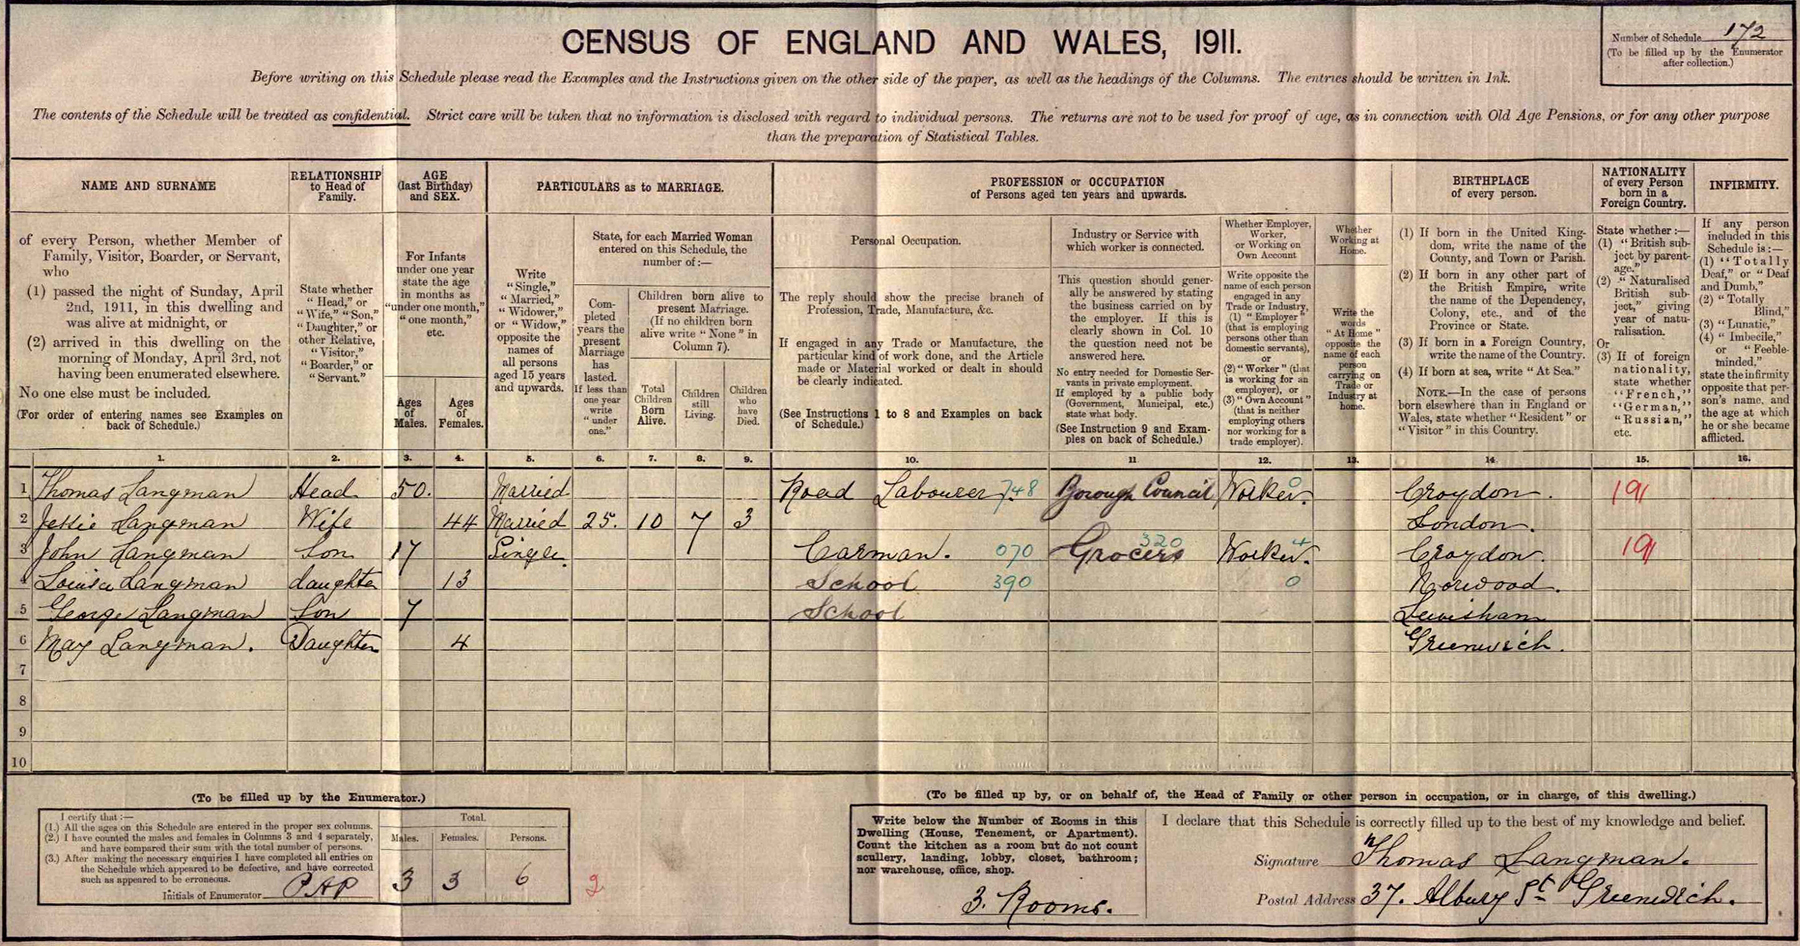 CENSUS OF ENGLAND AND WALES, 1911.
Number of Schedule 172
(To be filled up by the Enumerator
after collection.)
Before writing on this Schedule please read the Examples and the Instructions given on the other side of the paper, as well as the headings of the Columns. The entries should be written in Ink.
The contents of the Schedule will be treated as confidential. Strict care will be taken that no information is disclosed with regard to individual persons. The returns are not to be used for proof of age, as in connection with Old Age Pensions, or for any other purpose
than the preparation of Statistical Tables.
NAME AND SURNAME
of every Person, whether Member of
Family, Visitor, Boarder, or Servant,
who
(1) passed the night of Sunday, April
2nd, 1911, in this dwelling and
was alive at midnight, or
(2) arrived in this dwelling on the
morning of Monday, April 3rd, not
having been enumerated elsewhere.
No one else must be included.
(For order of entering names see Examples on
back of Schedule.)
RELATIONSHIP
to Head of
Family.
State whether
"Head," or
"Wife," "Son,"
"Daughter," or
other Relative,
"Visitor,"
"Boarder," or
"Servant."
AGE
(last Birthday)
and SEX.
For Infants
under one year
state the age
in months as
"under one month,"
"one month,"
etc.
Ages
of
Males.
Ages
of
Females.
PARTICULARS as to MARRIAGE.
Write
"Single,"
"Married,"
"Widower,"
or "Widow,"
opposite the
names of
all persons
aged 15 years
and upwards.
State, for each Married Woman
entered on this Schedule, the
number of:—
Com-
pleted
years the
present
Marriage
has
lasted.
If less than
one year
write
"under
one."
Children born alive to
present Marriage.
(If no children born
alive write "None" in
Column 7).
Total
Children
Born
Alive.
Children
still
Living.
Children
who
have
Died.
PROFESSION or OCCUPATION
of Persons aged ten years and upwards.
Personal Occupation.
The reply should show the precise branch of
Profession, Trade, Manufacture, &c.
If engaged in any Trade or Manufacture, the
particular kind of work done, and the Article
made or Material worked or dealt in should
be clearly indicated.
(See Instructions 1 to 8 and Examples on back
of Schedule.)
Industry or Service with
which worker is connected.
This question should gener-
ally be answered by stating
the business carried on by
the employer. If this is
clearly shown in Col. 10
the question need not be
answered here.
No entry needed for Domestic Ser-
vants in private employment.
If employed by a public body
(Government, Municipal, etc.)
state what body.
(See Instruction 9 and Exam-
ples on back of Schedule.)
Whether Employer,
Worker,
or Working on
Own Account
Write opposite the
name of each person
engaged in any
Trade or Industry,
(1) "Employer"
(that is employing
persons other than
domestic servants),
or
(2) "Worker" (that
is working for an
employer), or
(3) "Own Account"
(that is neither
employing others
nor working for a
trade employer).
Whether
Working at
Home.
Write the
words
"At Home"
opposite the
name of each
person
carrying on
Trade or
Industry at
home.
BIRTHPLACE
of every person.
(1) If born in the United King-
dom, write the name of the
County, and Town or Parish.
(2) If born in any other part of
the British Empire, write
the name of the Dependency,
Colony, etc., and of the
Province or State.
(3) If born in a Foreign Country,
write the name of the Country.
(4) If born at sea, write "At Sea."
NOTE.—In the case of persons
born elsewhere than in England or
Wales, state whether "Resident" or
"Visitor" in this Country.
NATIONALITY
of every Person
born in a
Foreign Country.
State whether:—
(1) "British sub-
ject by parent-
age,"
(2) "Naturalised
British sub-
ject," giving
year of natu-
ralisation.
Or
(3) If of foreign
nationality,
state whether
"French,"
"German,"
"Russian,"
etc.
INFIRMITY.
If any person
included in this
Schedule is:—
(1) "Totally
Deaf," or "Deaf
and Dumb,"
(2) "Totally
Blind,"
(3) "Lunatic,"
(4) "Imbecile,"
or "Feeble-
minded,"
state the infirmity
opposite that per-
son's name, and
the age at which
he or she became
afflicted.
1. 2. 3. 4. 5. 6. 7. 8. 9. 10. 11 12. 13. 14. 15. 16.
1 Thomas Langman Head 50. Married Road Labourer 748 Borough Council Worker. 0 Croydon. 191
2 Jessie Langman Wife 44 Married 25. 10 7 3 London.
3 John Langman Son 17 Single Carman. 070 Grocers 320 Worker. 4 Croydon. 191
4 Louisa Langman daughter 13 School 390 0 Norwood.
5 George Langman Son 7 School Lewisham
6 May Langman. Daughter 4 Greenwich.
7
8
9
10
(To be filled up by the Enumerator.)
I certify that:—
(1.) All the ages on this Schedule are entered in the proper sex columns.
(2.) I have counted the males and females in Columns 3 and 4 separately,
and have compared their sum with the total number of persons.
(3.) After making the necessary enquiries I have completed all entries on
the Schedule which appeared to be defective, and have corrected
such as appeared to be erroneous.
Initials of Enumerator PAP
Total.
Males. Females. Persons.
3 3 6 2
(To be filled up by, or on behalf of, the Head of Family or other person in occupation, or in charge, of this dwelling.)
Write below the Number of Rooms in this
Dwelling (House, Tenement, or Apartment).
Count the kitchen as a room but do not count
scullery, landing, lobby, closet, bathroom;
nor warehouse, office, shop.
3. Rooms.
I declare that this Schedule is correctly filled up to the best of my knowledge and belief.
Signature Thomas Langman.
Postal Address 37. Albury St Greenwich.